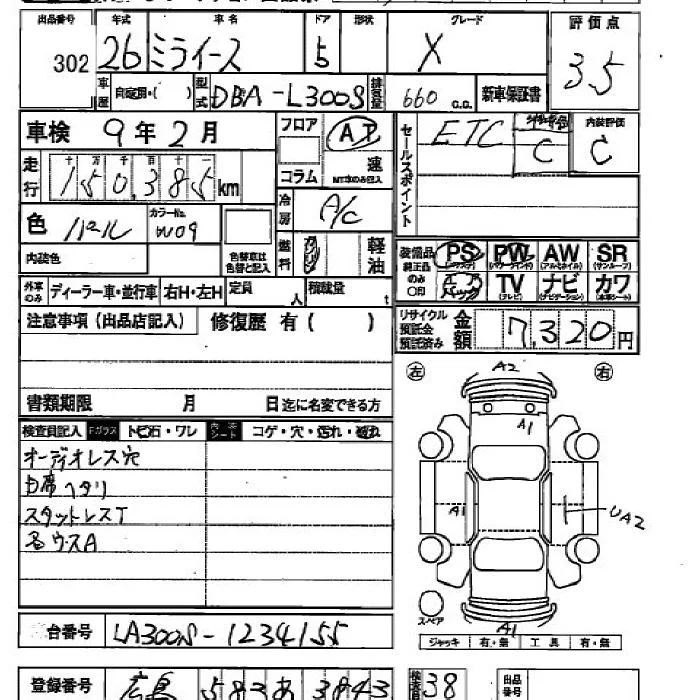 出品番号 年式 車名 ドア 形状 グレード 評価点
302 26 ミライース 5 X 3.5
車歴 自家用・( ) 型式 DBA-L300S 排気量 660 c.c. 新車保証書
車検 9年2月 フロア AT セールスポイント ETC 内装評価
C C
走行 十万千百十一 コラム 速
150,385km MT車のみ記入
冷房 A/C
色 パール カラーNo. W09
内装色 色替車は色替と記入 燃料 ガソリン 軽油
装備品 純正品のみ○印 PS (パワステ) PW (パワーウインド) AW (アルミホイル) SR (サンルーフ)
エアバック TV (テレビ) ナビ (ナビゲーション) カワ (本革シート)
外車のみ ディーラー車・並行車 右H・左H 定員 人 積載量 t
注意事項(出品店記入) 修復歴 有( )
リサイクル預託金預託済み 金額 7,320円
左 A2 右
A1
書類期限 月 日迄に名変できる方
検査員記入 Fガラス トビ石・ワレ 内装シート コゲ・穴・汚れ・破れ
オーディオレス穴
内席ヘタリ
スタットレスT
A1 UA2
スペア
A1
ジャッキ 有・無 工具 有・無
台番号 LA300S-1234155
登録番号 広島 583あ3843 38 出品番号